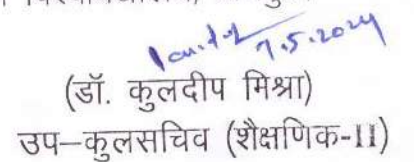 7.5.2024
(डॉ. कुलदीप मिश्रा)
उप–कुलसचिव (शैक्षणिक-II)